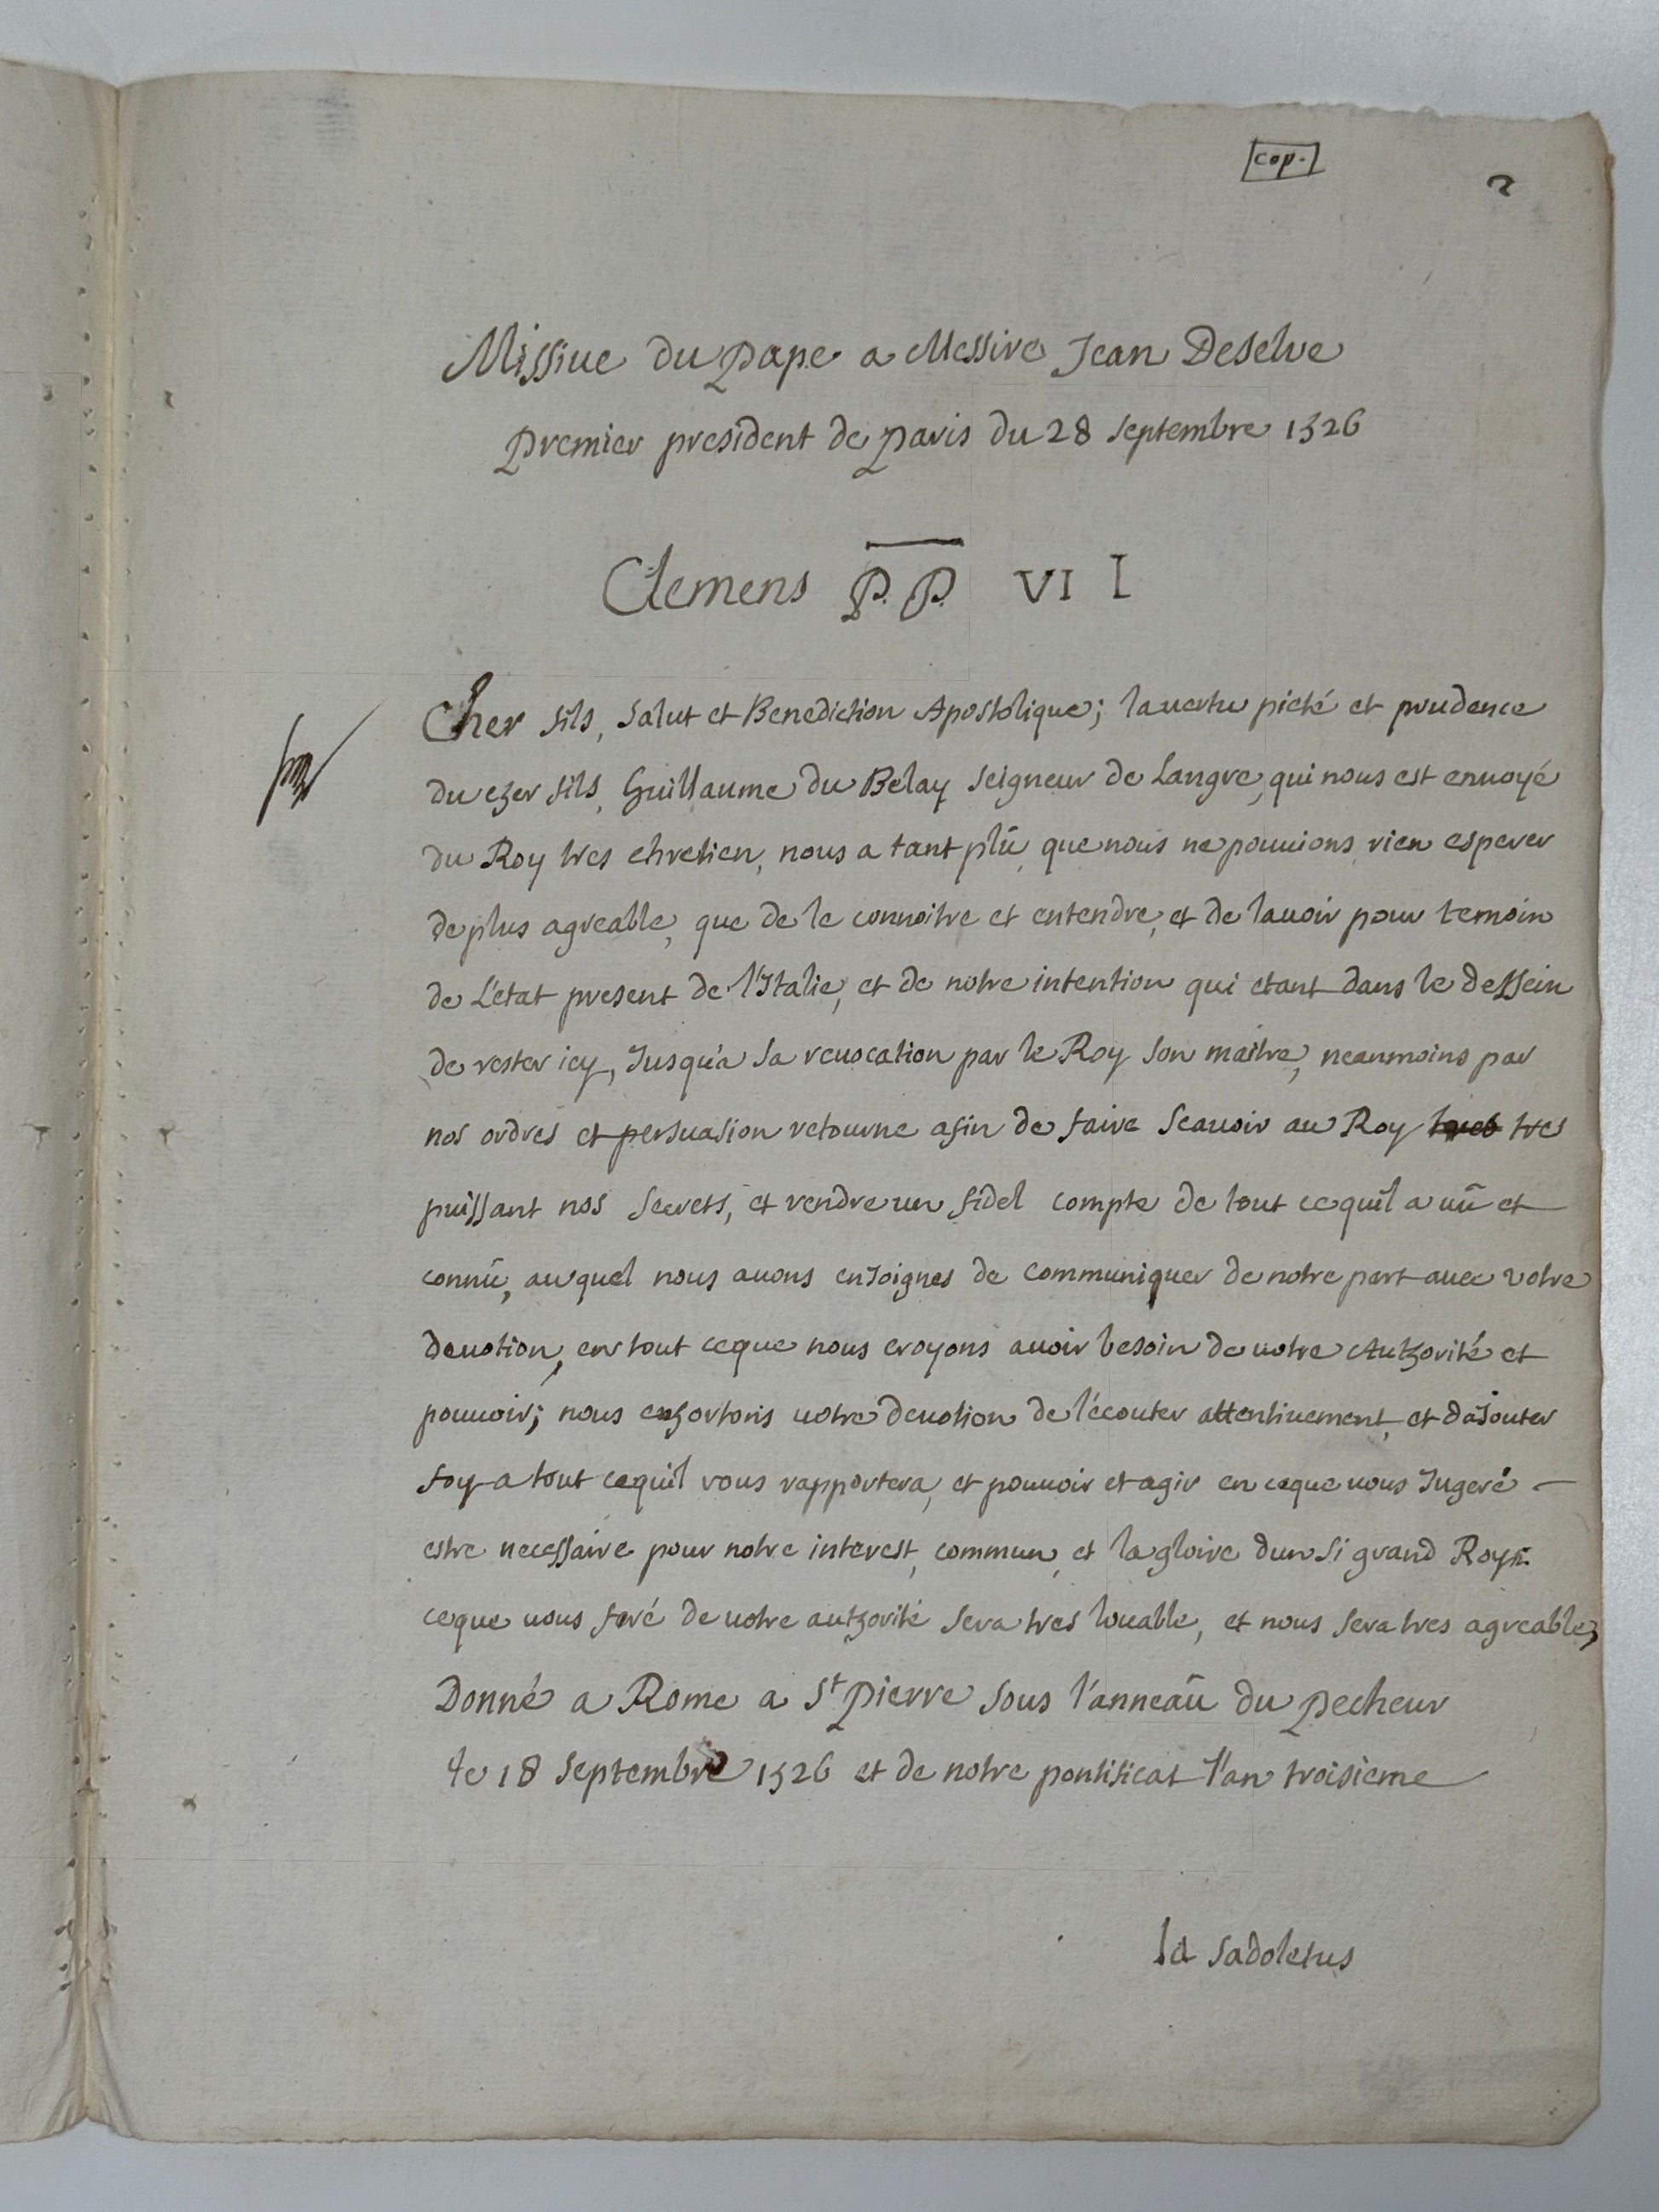 cop.
2
Missive du Pape a Messire Jean Deselve
Premier president de Paris du 28 septembre 1526
Clemens P.P. VII
Cher fils, Salut et Benediction Apostolique; la vertu pieté et prudence
du cher fils, Guillaume du Belay seigneur de Langre, qui nous est envoyé
du Roy tres chretien, nous a tant plû, que nous ne pouvions rien esperer
de plus agreable, que de le connoitre et entendre, et de lavoir pour temoin
de L'etat present de l'Italie, et de notre intention qui etant dans le dessein
de rester icy, Jusqu'a sa revocation par le Roy son maitre, neanmoins par
nos ordres et persuasion retourne afin de faire Scavoir au Roy tres
puissant nos Secrets, et rendre un fidel compte de tout ce quil a vû et
connû, auquel nous avons enJoignes de communiquer de notre part avec votre
devotion, en tout ce que nous croyons avoir besoin de votre Authorité et
pouvoir; nous exhortons votre devotion de l'écouter attentivement, et daJouter
foy a tout ce quil vous rapportera, et pouvoir et agir en ce que vous Jugeré
estre necessaire pour notre interest, commun, et la gloire dun si grand Roy
ce que vous feré de votre authorité sera tres louable, et nous sera tres agreable,
Donné a Rome a St Pierre sous l'anneaû du Pecheur
le 18 Septembre 1526 et de notre pontificat l'an troisieme
Ia Sadoletus